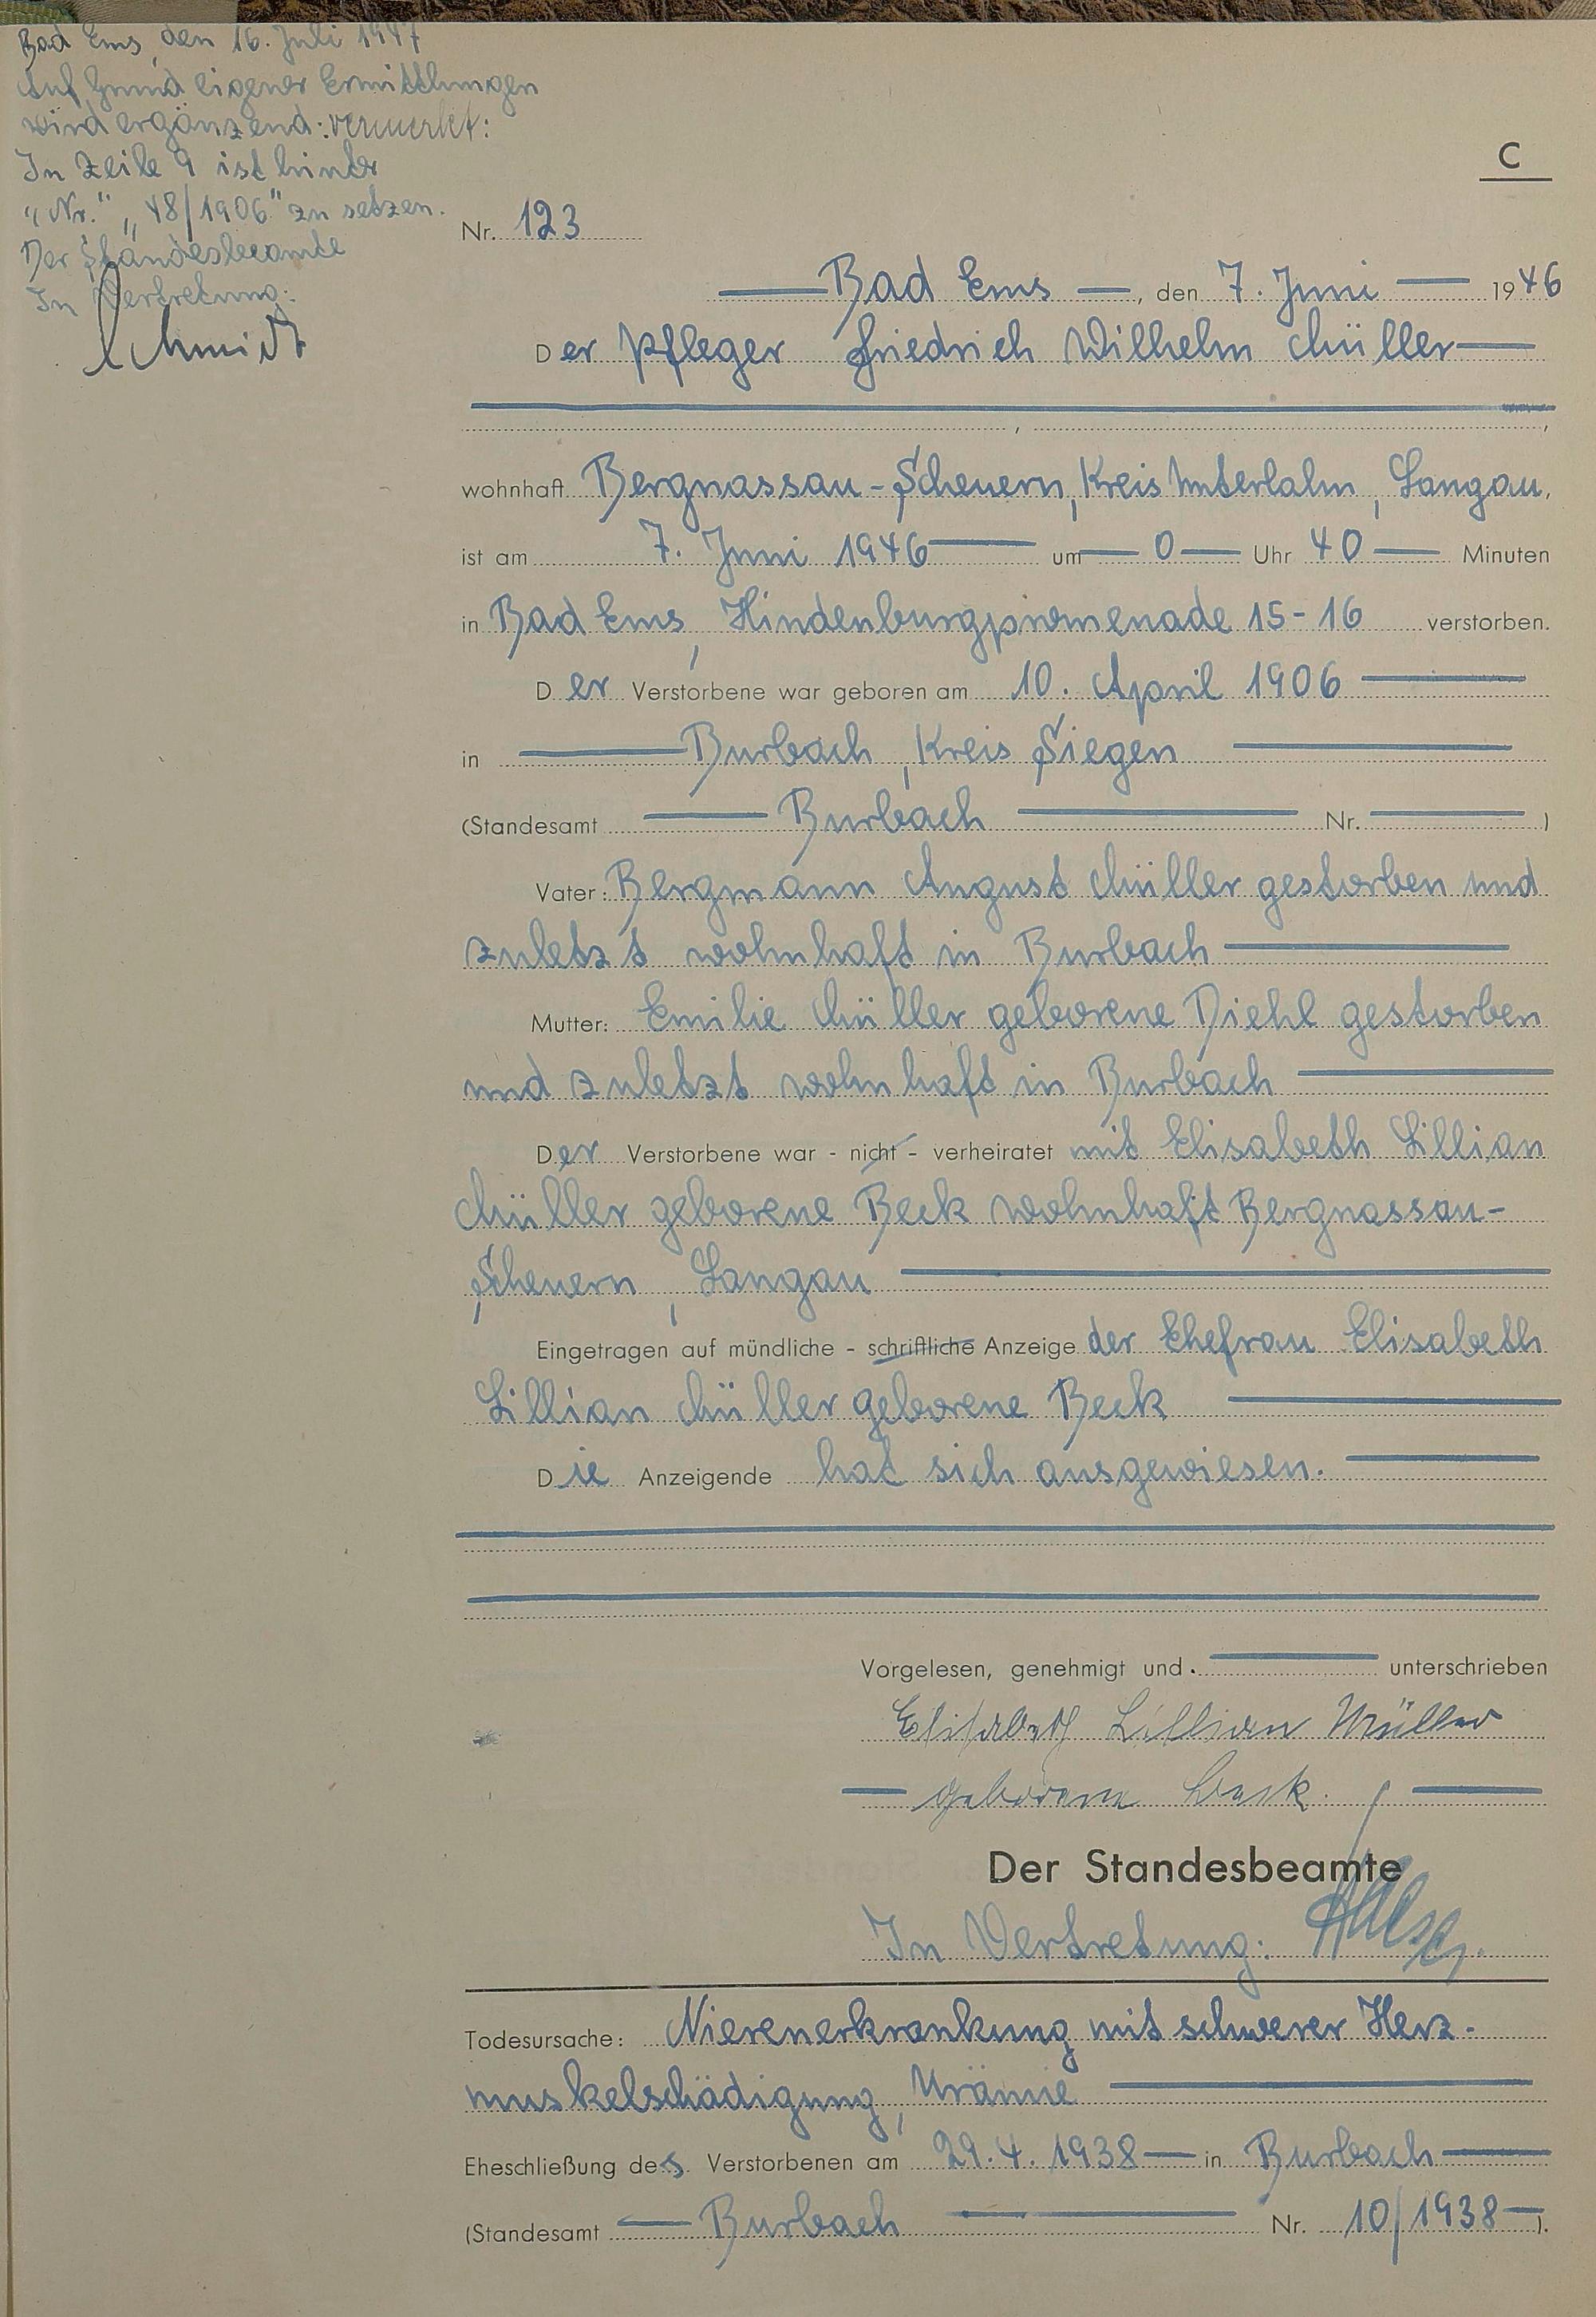 Bad Ems, den 16. Juli 1947
Auf Grund eigener Ermittlungen
wird ergänzend: vermerkt:
In Zeile 9 ist hinter
"Nr." "48/1906" zu setzen.
Der Standesbeamte
In Vertretung:
Schmidt
C
Nr. 123
Bad Ems, den 7. Juni 1946
Der Pfleger Friedrich Wilhelm Müller
wohnhaft Bergnassau-Scheuern, Kreis Unterlahn, Langau,
ist am 7. Juni 1946 um 0 Uhr 40 Minuten
in Bad Ems, Hindenburgpromenade 15-16 verstorben.
Der Verstorbene war geboren am 10. April 1906
in Burbach, Kreis Siegen
(Standesamt Burbach Nr. )
Vater: Bergmann August Müller gestorben und
zuletzt wohnhaft in Burbach
Mutter: Emilie Müller geborene Diehl gestorben
und zuletzt wohnhaft in Burbach
Der Verstorbene war - nicht - verheiratet mit Elisabeth Lillian
Müller geborene Beck wohnhaft Bergnassau-
Scheuern, Langau
Eingetragen auf mündliche - schriftliche Anzeige der Ehefrau Elisabeth
Lillian Müller geborene Beck
Die Anzeigende hat sich ausgewiesen.
Vorgelesen, genehmigt und unterschrieben
Elisabeth Lillian Müller
geborene Beck.
Der Standesbeamte
In Vertretung:
Todesursache: Nierenerkrankung mit schwerer Herz-
muskelschädigung, Urämie
Eheschließung des Verstorbenen am 29.4.1938 in Burbach
(Standesamt Burbach Nr. 10/1938).